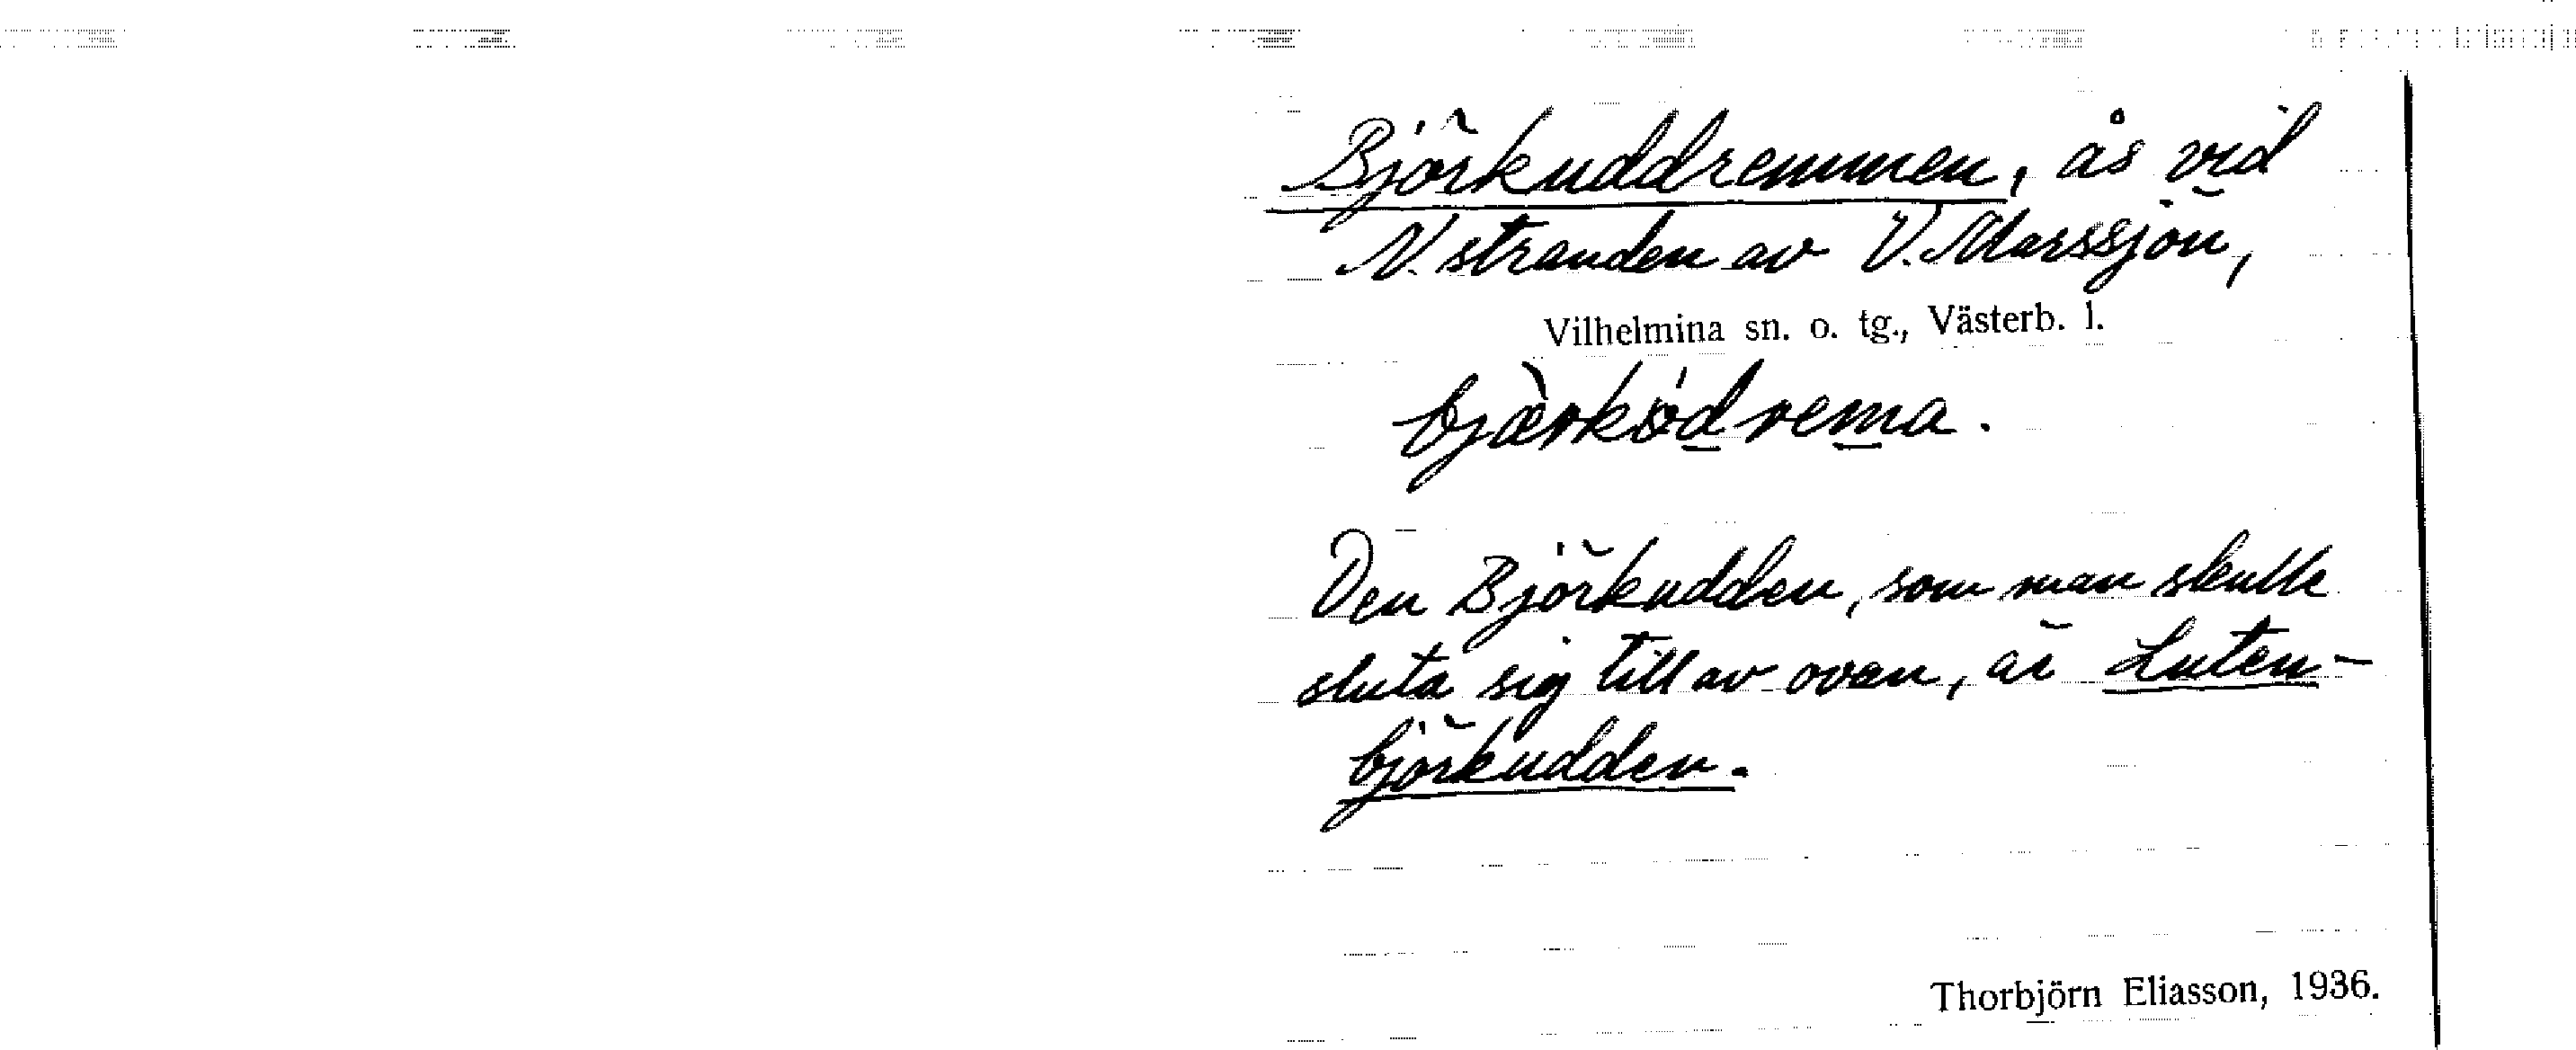 Björkuddremmen, ås vid
N. stranden av V. Marssjön,
Vilhelmina sn. o. tg., Västerb. l.
bjæ̀rkùdrema.
Den Björkudden, som man skulle
sluta sig till av ovan, är Luten-
björkudden.
Thorbjörn Eliasson, 1936.